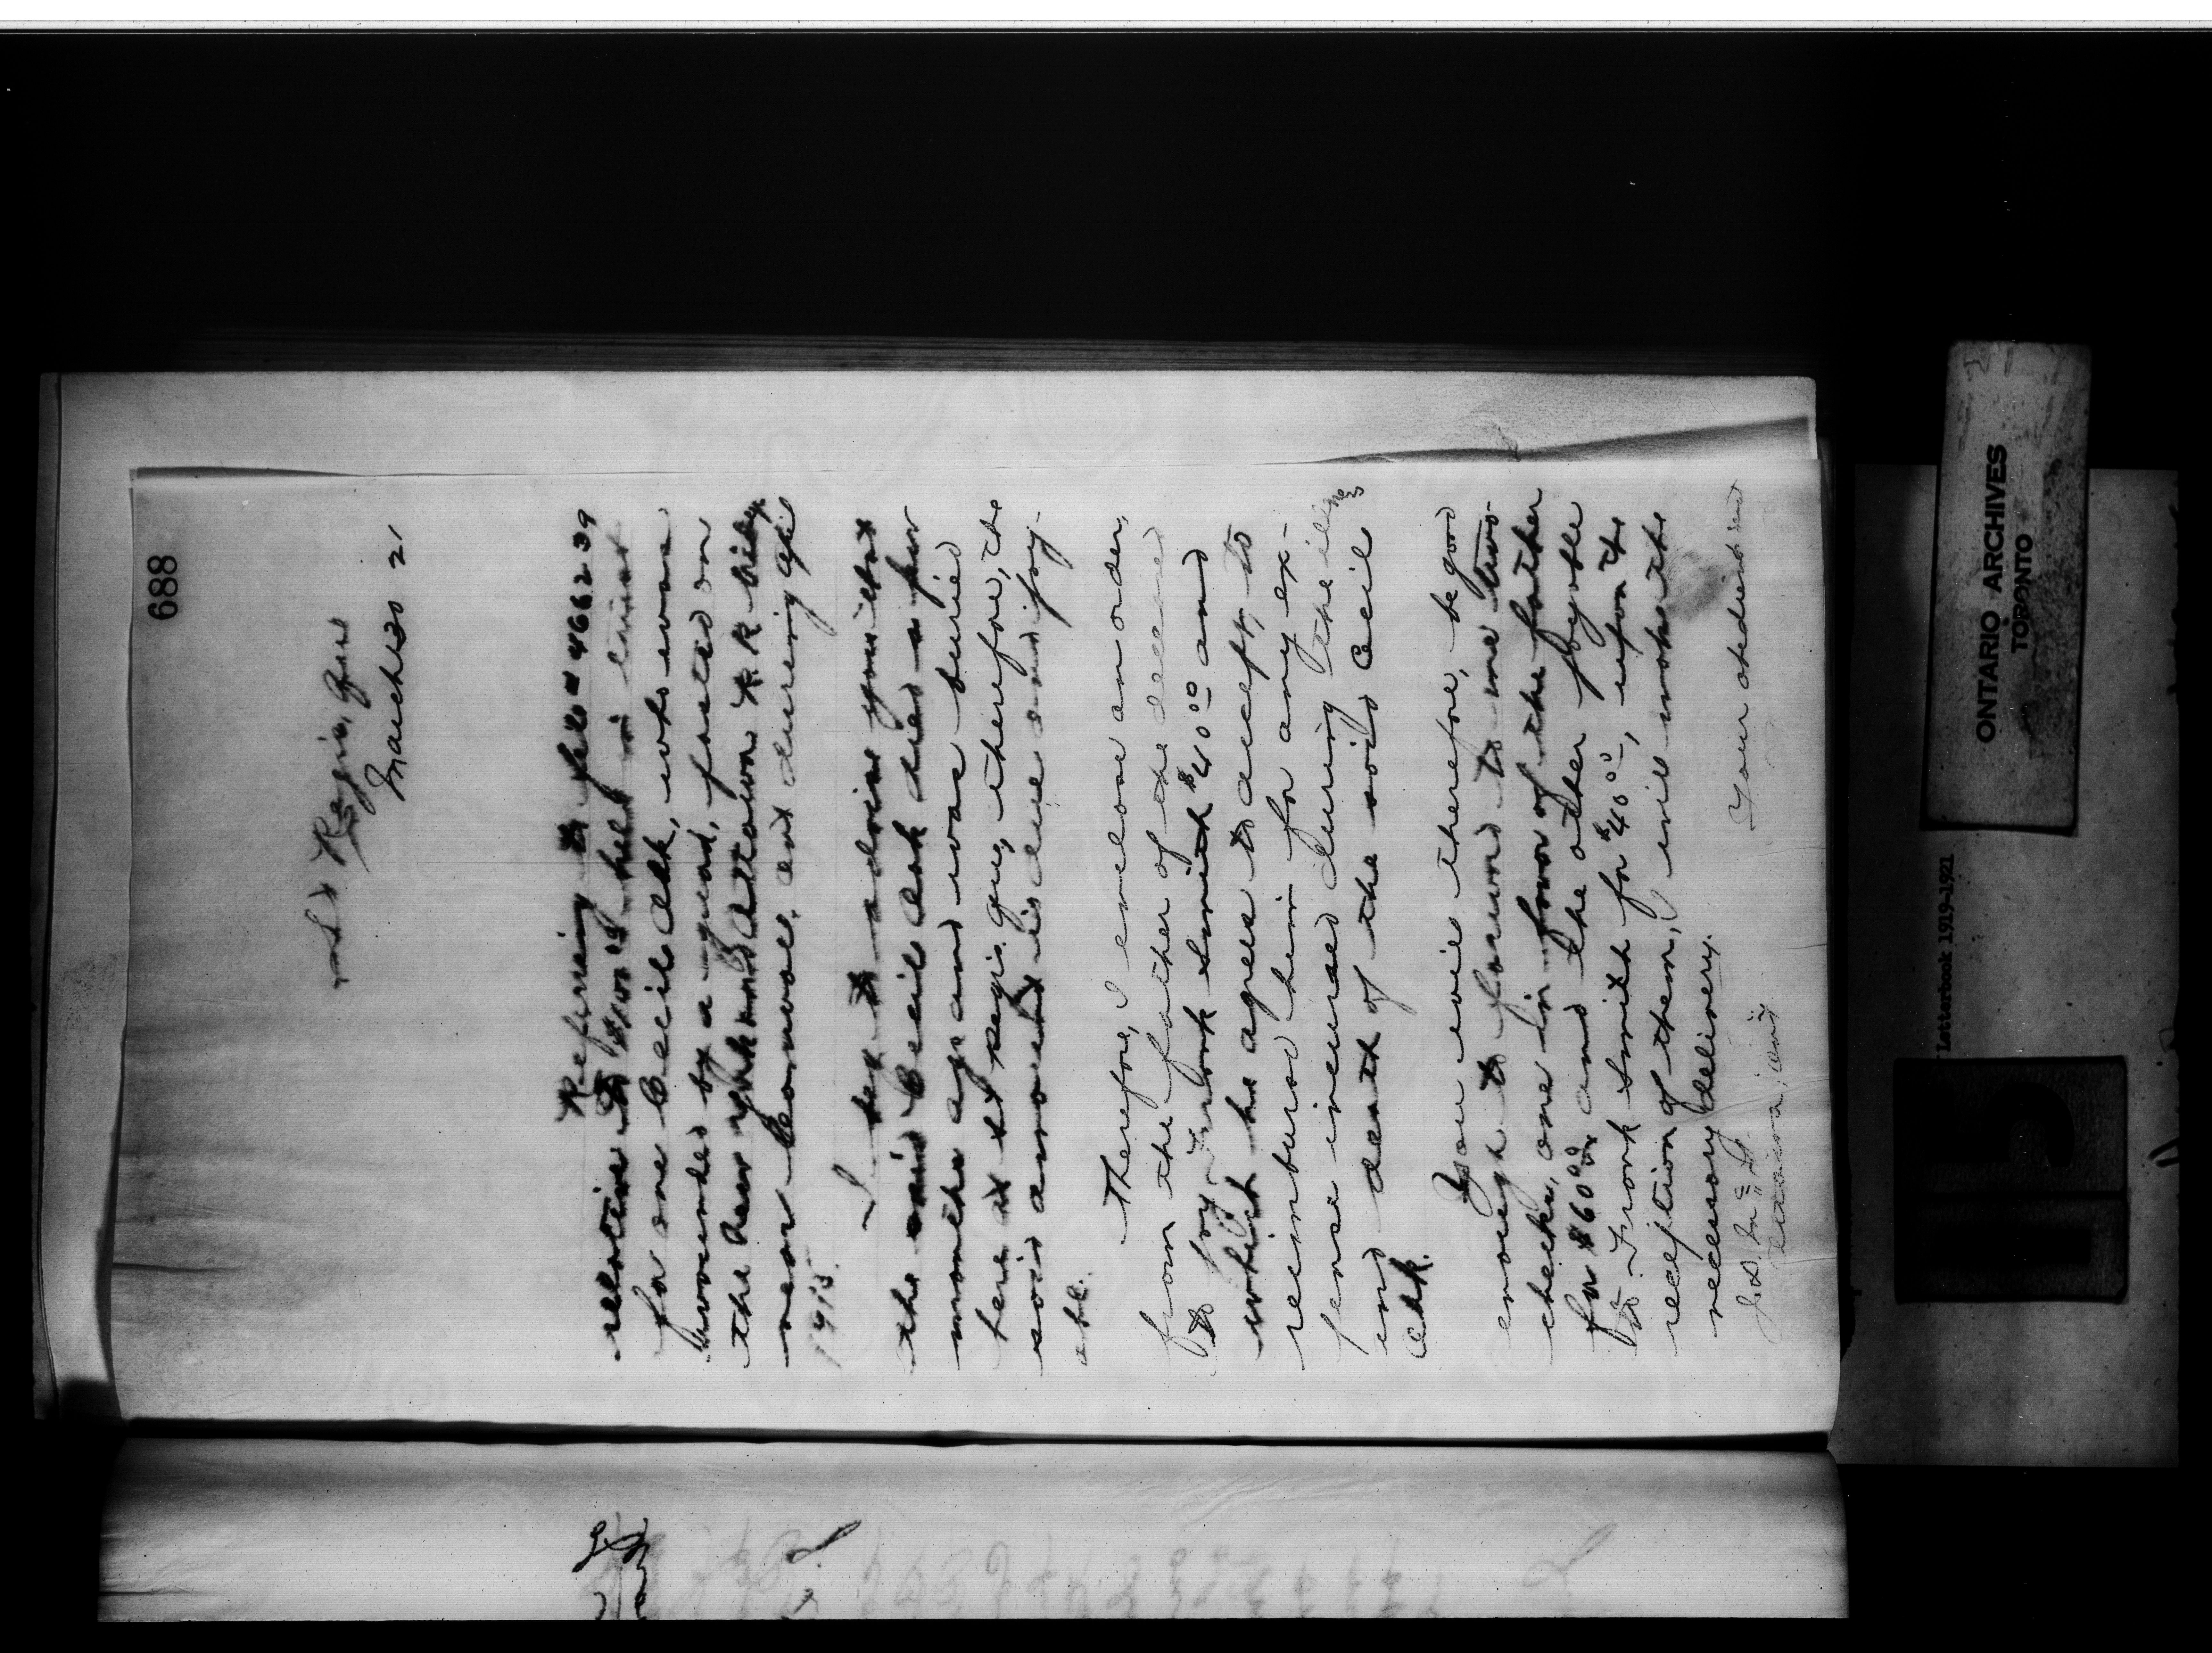 688
St Regis, Que
March 30 21
Referring to file # 466239
relative to $100.00 held in trust
for one Cecil Ark, who was
wounded by a guard, posted on
the New York and Ottawa R.R. bridge
near Cornwall, Ont during
1915.
I beg to advise you that
the said Cecil Ark died a few
months ago and was buried
here at St Regis. Que, therefore, the
said amount is due and pay-
able.
Therefore, I enclose an order,
from the father of the deceased
to pay Frank Smith $40.00 and
which he agrees to accept, to
reimburse him for any ex-
pense incurred during the illness
and death of the said Cecil
Ark.
You will therefore, be good
enough to forward to me two
checks, one in favor of the father
for $60.00 and the other payable
to Frank Smith for $40.00, upon the
reception of them, I will make the
necessary delivery.
Your obedient servt
ONTARIO ARCHIVES
TORONTO
Letterbook 1919-1921